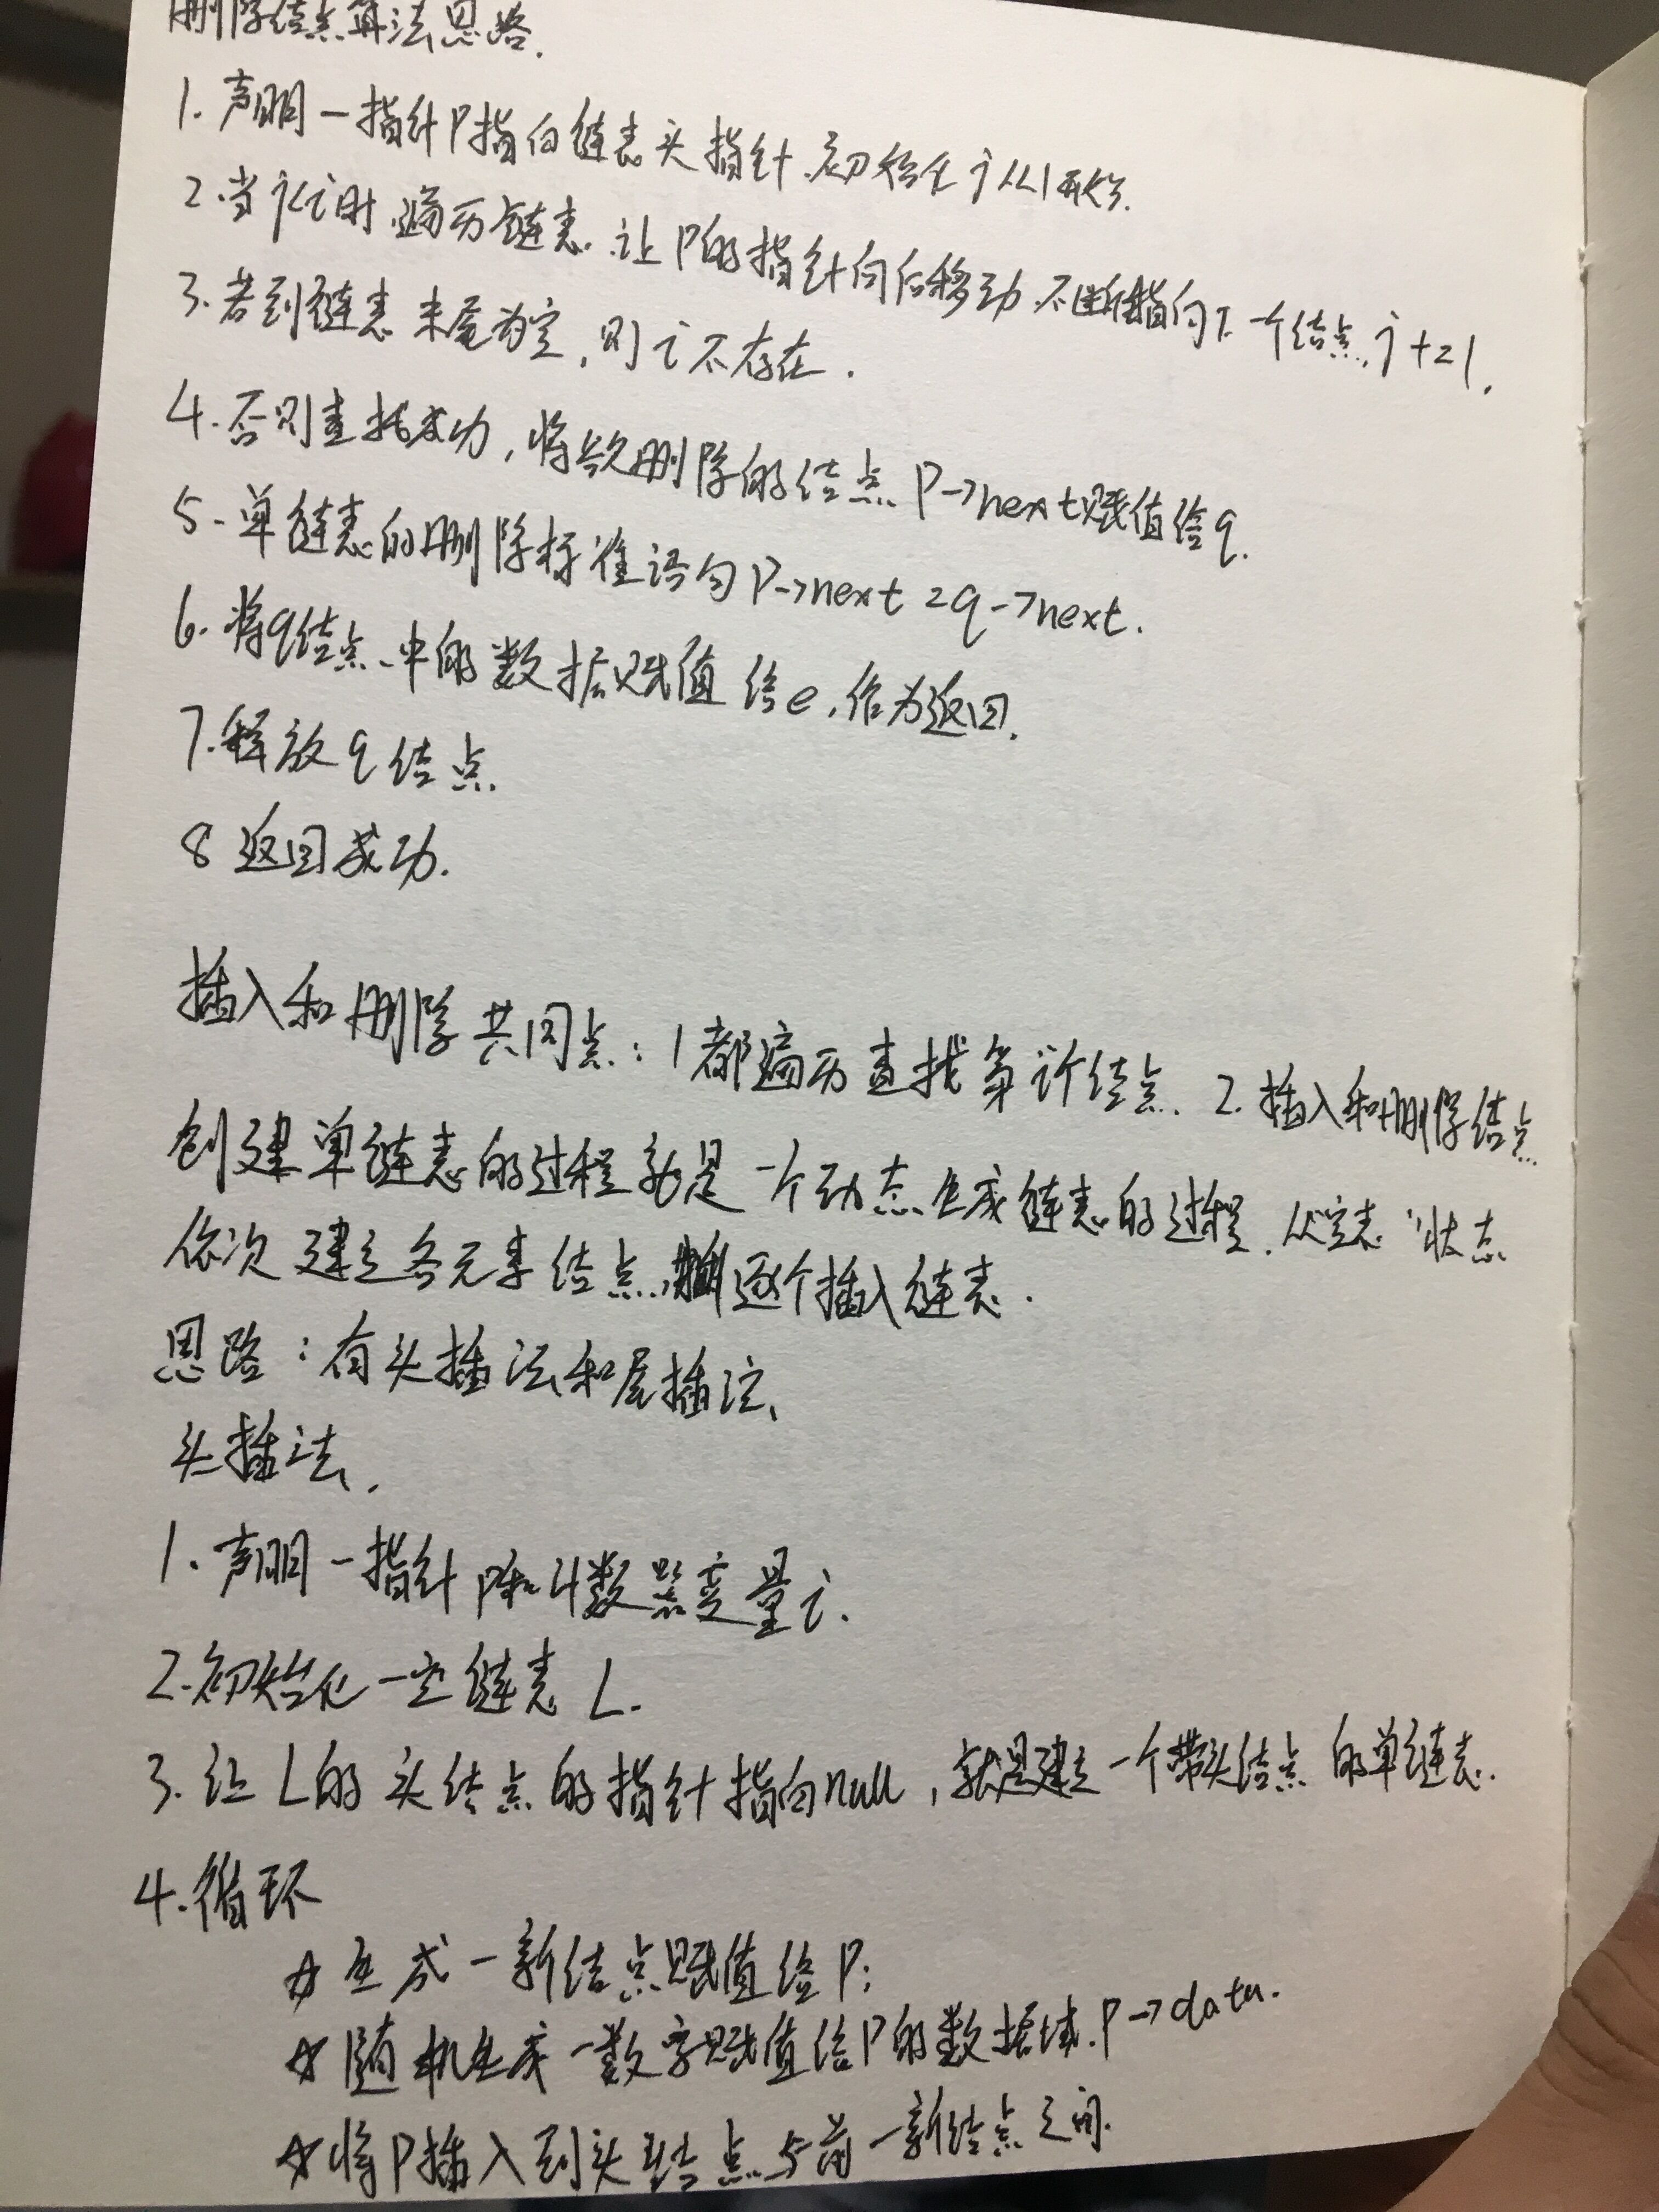 删除结点算法思路.
1. 声明一指针P指向链表头指针.初始化j从1开始.
2.当j<i时.遍历链表.让P的指针向后移动.不断指向下一个结点.j+=1.
3.若到链表末尾为空,则i不存在.
4.否则查找成功,将欲删除的结点P->next赋值给q.
5.单链表的删除标准语句P->next=q->next.
6.将q结点中的数据赋值给e,作为返回.
7.释放q结点
8 返回成功.
插入和删除共同点:1都遍历查找第i个结点.2.插入和删除结点.
创建单链表的过程就是一个动态生成链表的过程.从空表"状态
依次建立各元素结点,逐个插入链表.
思路:有头插法和尾插法.
头插法.
1.声明一指针P和计数器变量i.
2.初始化一空链表L.
3.让L的头结点的指针指向null,就是建立一个带头结点的单链表.
4.循环
☆生成一新结点赋值给P;
☆随机生成一数字赋值给P的数据域.P->data.
☆将P插入到头结点与前一新结点之间.